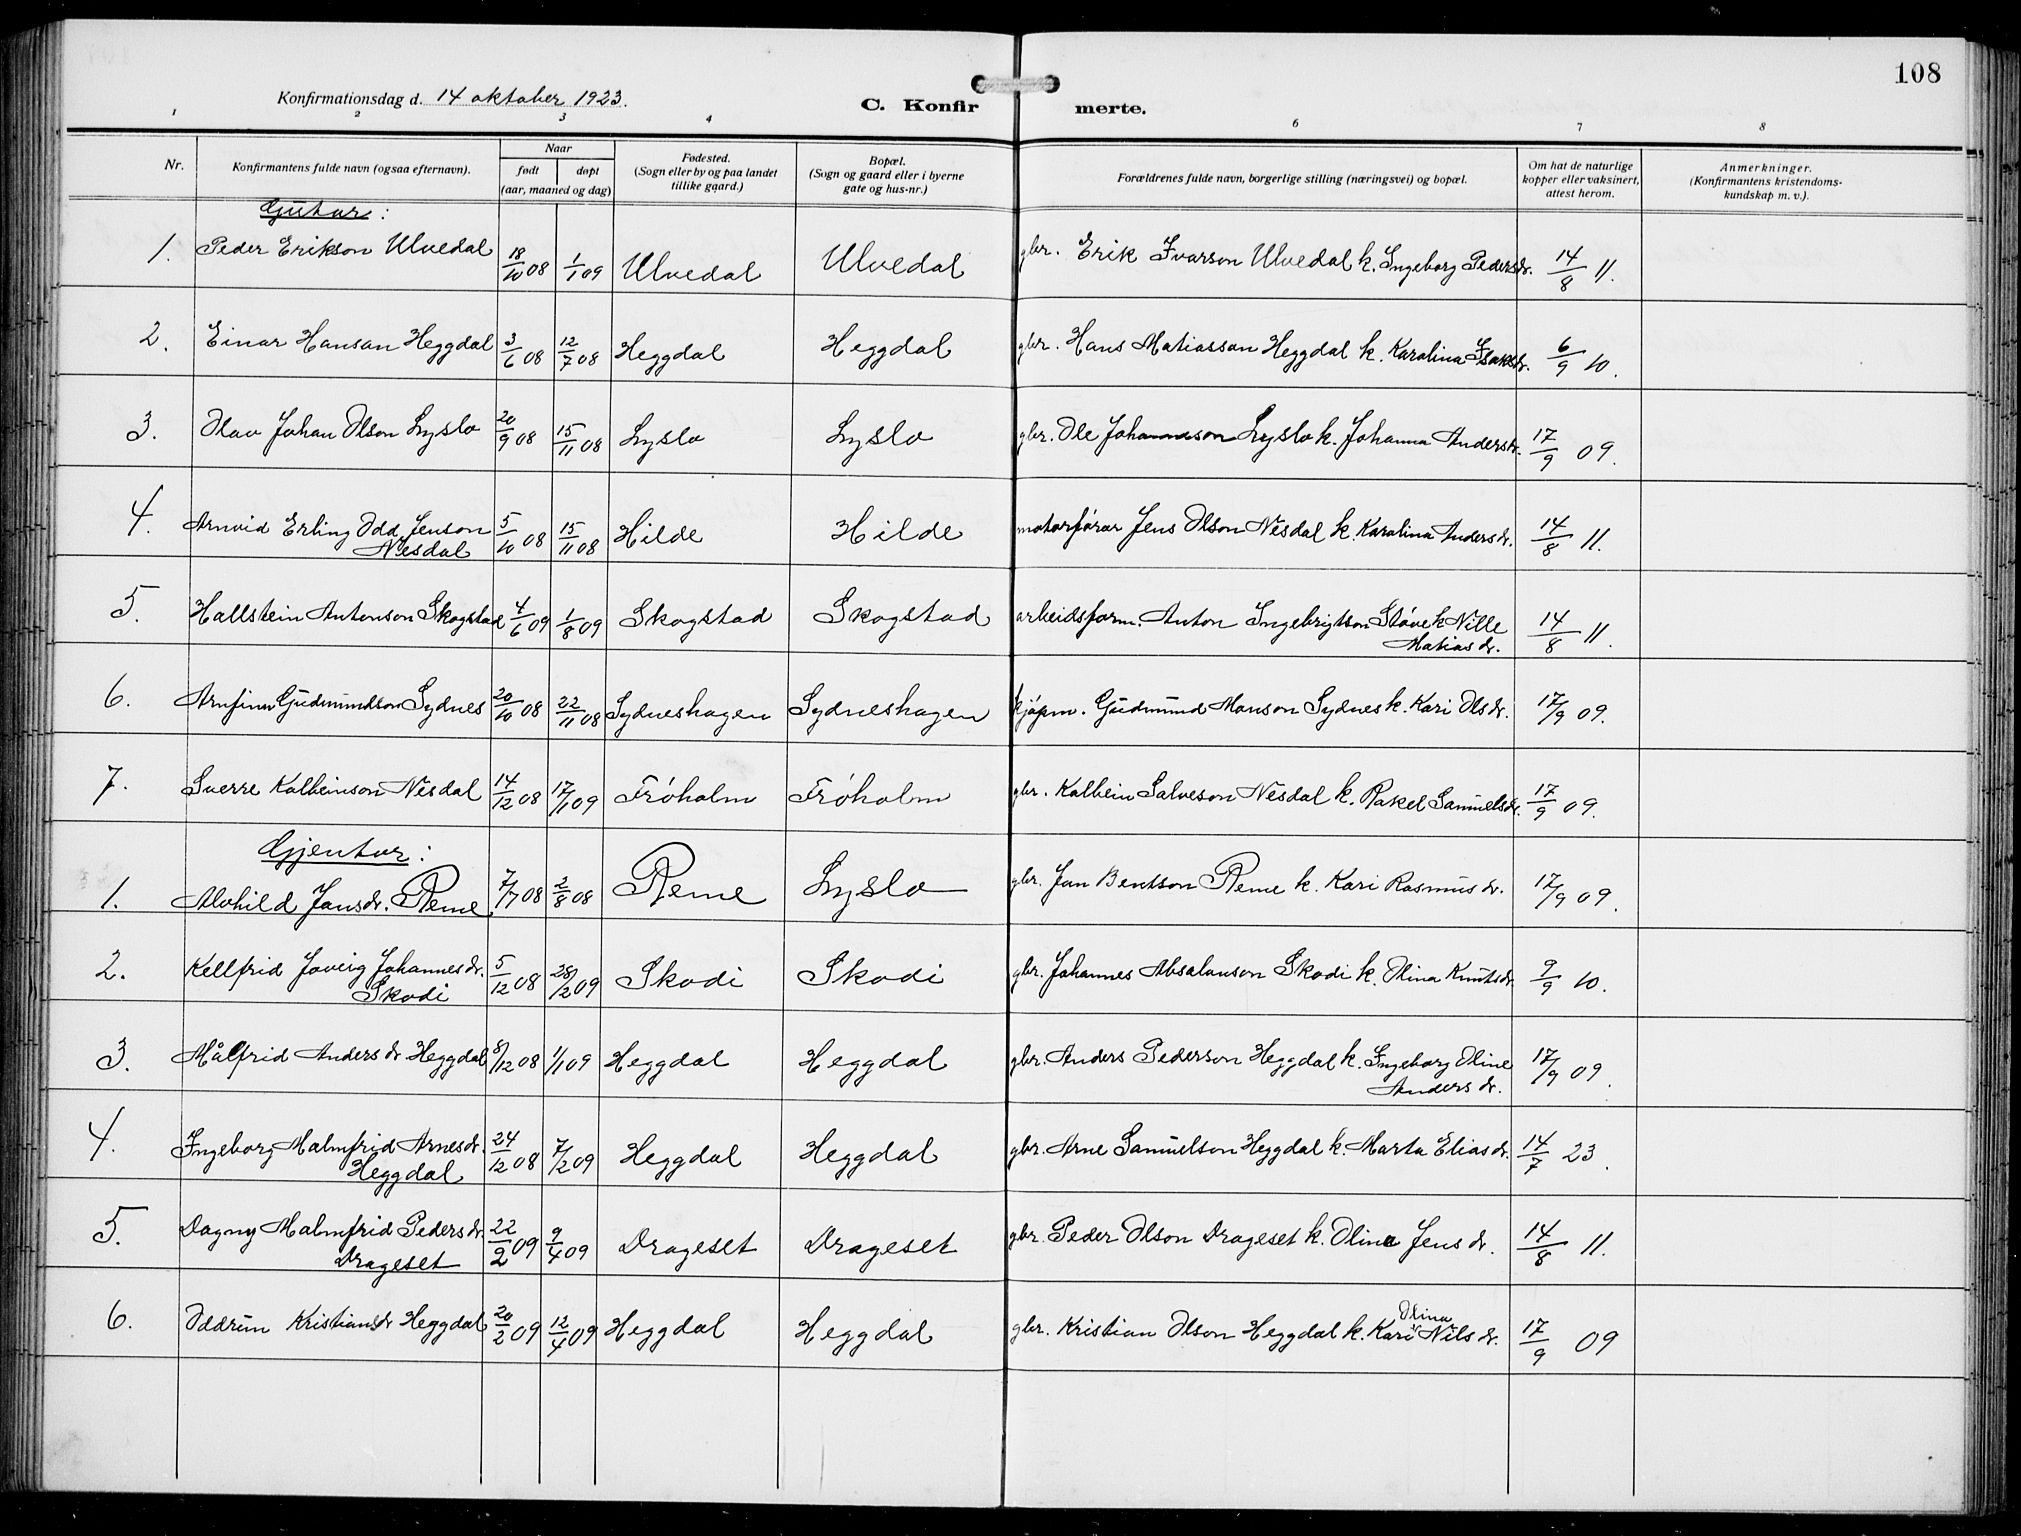 108
Konfirmationsdag d. 14 oktober 1923.
C. Konfirmerte.
1 2 3 4 6 7 8
Nr.
Konfirmantens fulde navn (ogsaa efternavn).
Naar
født døpt
(aar, maaned og dag)
Fødested.
(Sogn eller by og paa landet
tillike gaard.)
Bopæl.
(Sogn og gaard eller i byerne
gate og hus-nr.)
Forældrenes fulde navn, borgerlige stilling (næringsvei) og bopæl.
Om hat de naturlige
kopper eller vaksinert,
attest herom.
Anmerkninger.
(Konfirmantens kristendoms-
kundskap m. v.).
Gutar:
1. Peder Erikson Ulvedal 18/10 08 1/1 09 Ulvedal Ulvedal gbr. Erik Ivarson Ulvedal k. Ingeborg Pedersdr. 14/8 11.
2. Einar Hansan Heggdal 3/6 08 12/7 08 Heggdal Heggdal gbr. Hans Matiasson Heggdal k. Karalina Isaksdr. 6/9 10.
3. Olav Johan Olson Lyslo 20/9 08 15/11 08 Lyslo Lyslo gbr. Ole Johannesson Lyslo k. Johanna Andersdr. 17/9 09.
4. Arnvid Erling Odd Jenson 5/10 08 15/11 08 Hilde Hilde motorførar Jens Olson Nesdal k. Karalina Andersdr. 14/8 11.
Nesdal
5. Hallstein Antonson Skogstad 4/6 09 1/8 09 Skogstad Skogstad arbeidsform. Anton Ingebrigtson Støve k Nille 14/8 11.
Matias dr.
6. Arnfinn Gudmundson Sydnes 20/10 08 22/11 08 Sydneshagen Sydneshagen kjøpm. Gudmund Monson Sydnes k. Kari Olsdr. 17/9 09.
7. Sverre Kolbeinson Nesdal 14/12 08 17/1 09 Frøholm Frøholm gbr. Kolbein Salveson Nesdal k. Rakel Samuelsdr. 17/9 09.
Gjentur:
1. Alvhild Jansdr. Reme 7/7 08 2/8 08 Reme Lyslo gbr. Jan Bentson Reme k. Kari Rasmus dr. 17/9 09.
2. Kellfrid Joveig Johannesdr. 5/12 08 28/2 09 Skodi Skodi gbr. Johannes Absalonson Skodi k. Olina Knutsdr. 9/9 10.
Skodi
3. Målfrid Anders dr Heggdal 8/12 08 1/1 09 Heggdal Heggdal gbr. Anders Pederson Heggdal k. Ingeborg Oline 17/9 09.
Anders dr.
4. Ingeborg Malmfrid Arnesdr. 24/12 08 7/2 09 Heggdal Heggdal gbr. Arne Samuelson Heggdal k. Marta Elias dr. 14/7 23.
Heggdal
5. Dagny Malmfrid Peders dr. 22/2 09 9/4 09 Drageset Drageset gbr. Peder Olson Drageset k. Olina Jens dr. 14/8 11.
Drageset
Olina
6. Oddrun Kristiansdr Heggdal 20/2 09 12/4 09 Heggdal Heggdal gbr. Kristian Olson Heggdal k. Kari Nils dr. 17/9 09